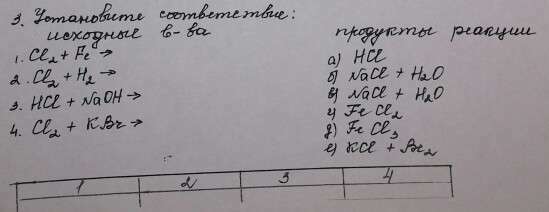 3. Установите соответствие:
исходные в-ва
продукты реакции
1. Cl₂ + Fe →
2. Cl₂ + H₂ →
3. HCl + NaOH →
4. Cl₂ + KBr →
а) HCl
б) NaCl + H₂O
в) NaCl + H₂O
г) FeCl₂
д) FeCl₃
е) KCl + Br₂
1 2 3 4